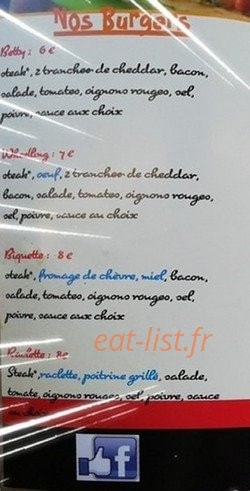 Nos Burgers
Betty : 6 €
steak*, 2 tranches de cheddar, bacon,
salade, tomates, oignons rouges, sel,
poivre, sauce aux choix
7 €
steak*, oeuf, 2 tranches de cheddar,
bacon, salade, tomates, oignons rouges,
sel, poivre, sauce au choix
Biquette : 8 €
steak*, fromage de chèvre, miel, bacon,
salade, tomates, oignons rouges, sel,
poivre, sauce aux choix
eat-list.fr
8€
Steak*, raclette, poitrine grillé, salade,
tomate, oignons rouges, sel, poivre, sauce
au choix
f